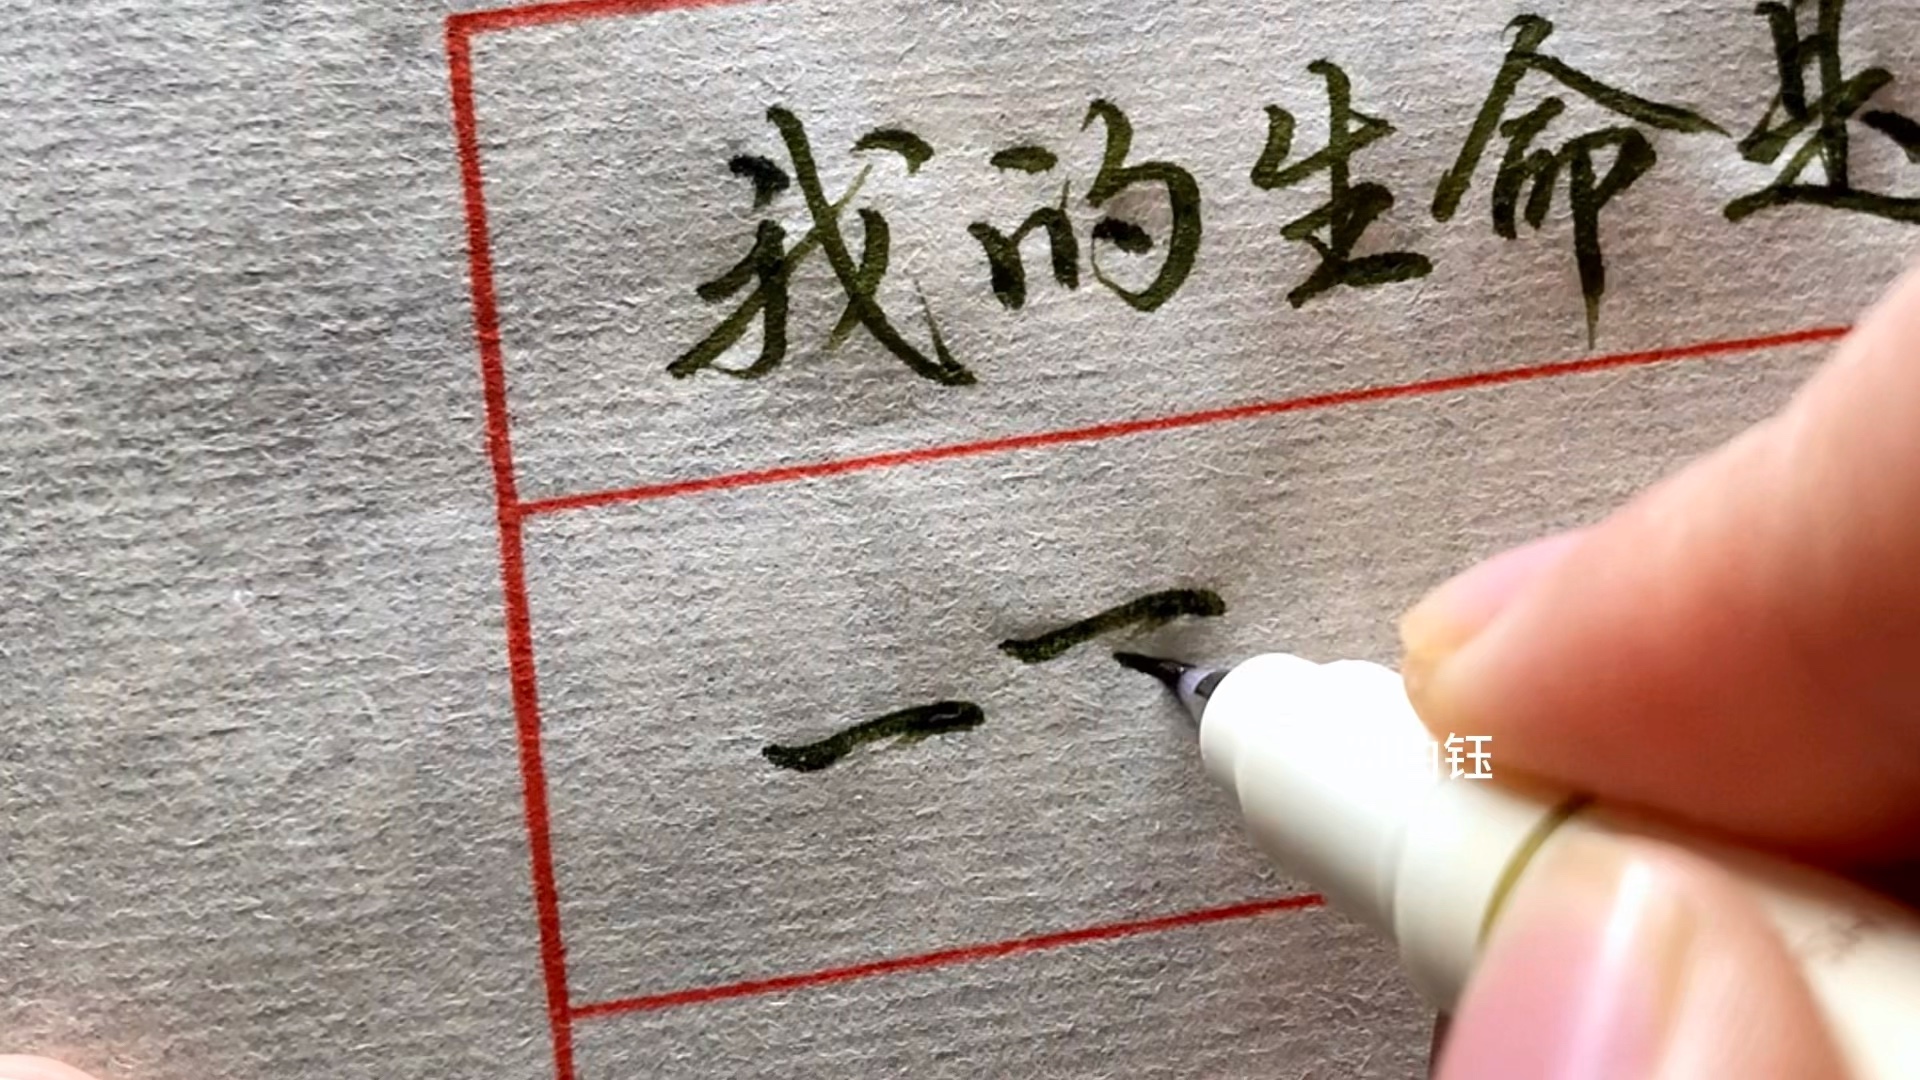 我的生命是
一一
钰